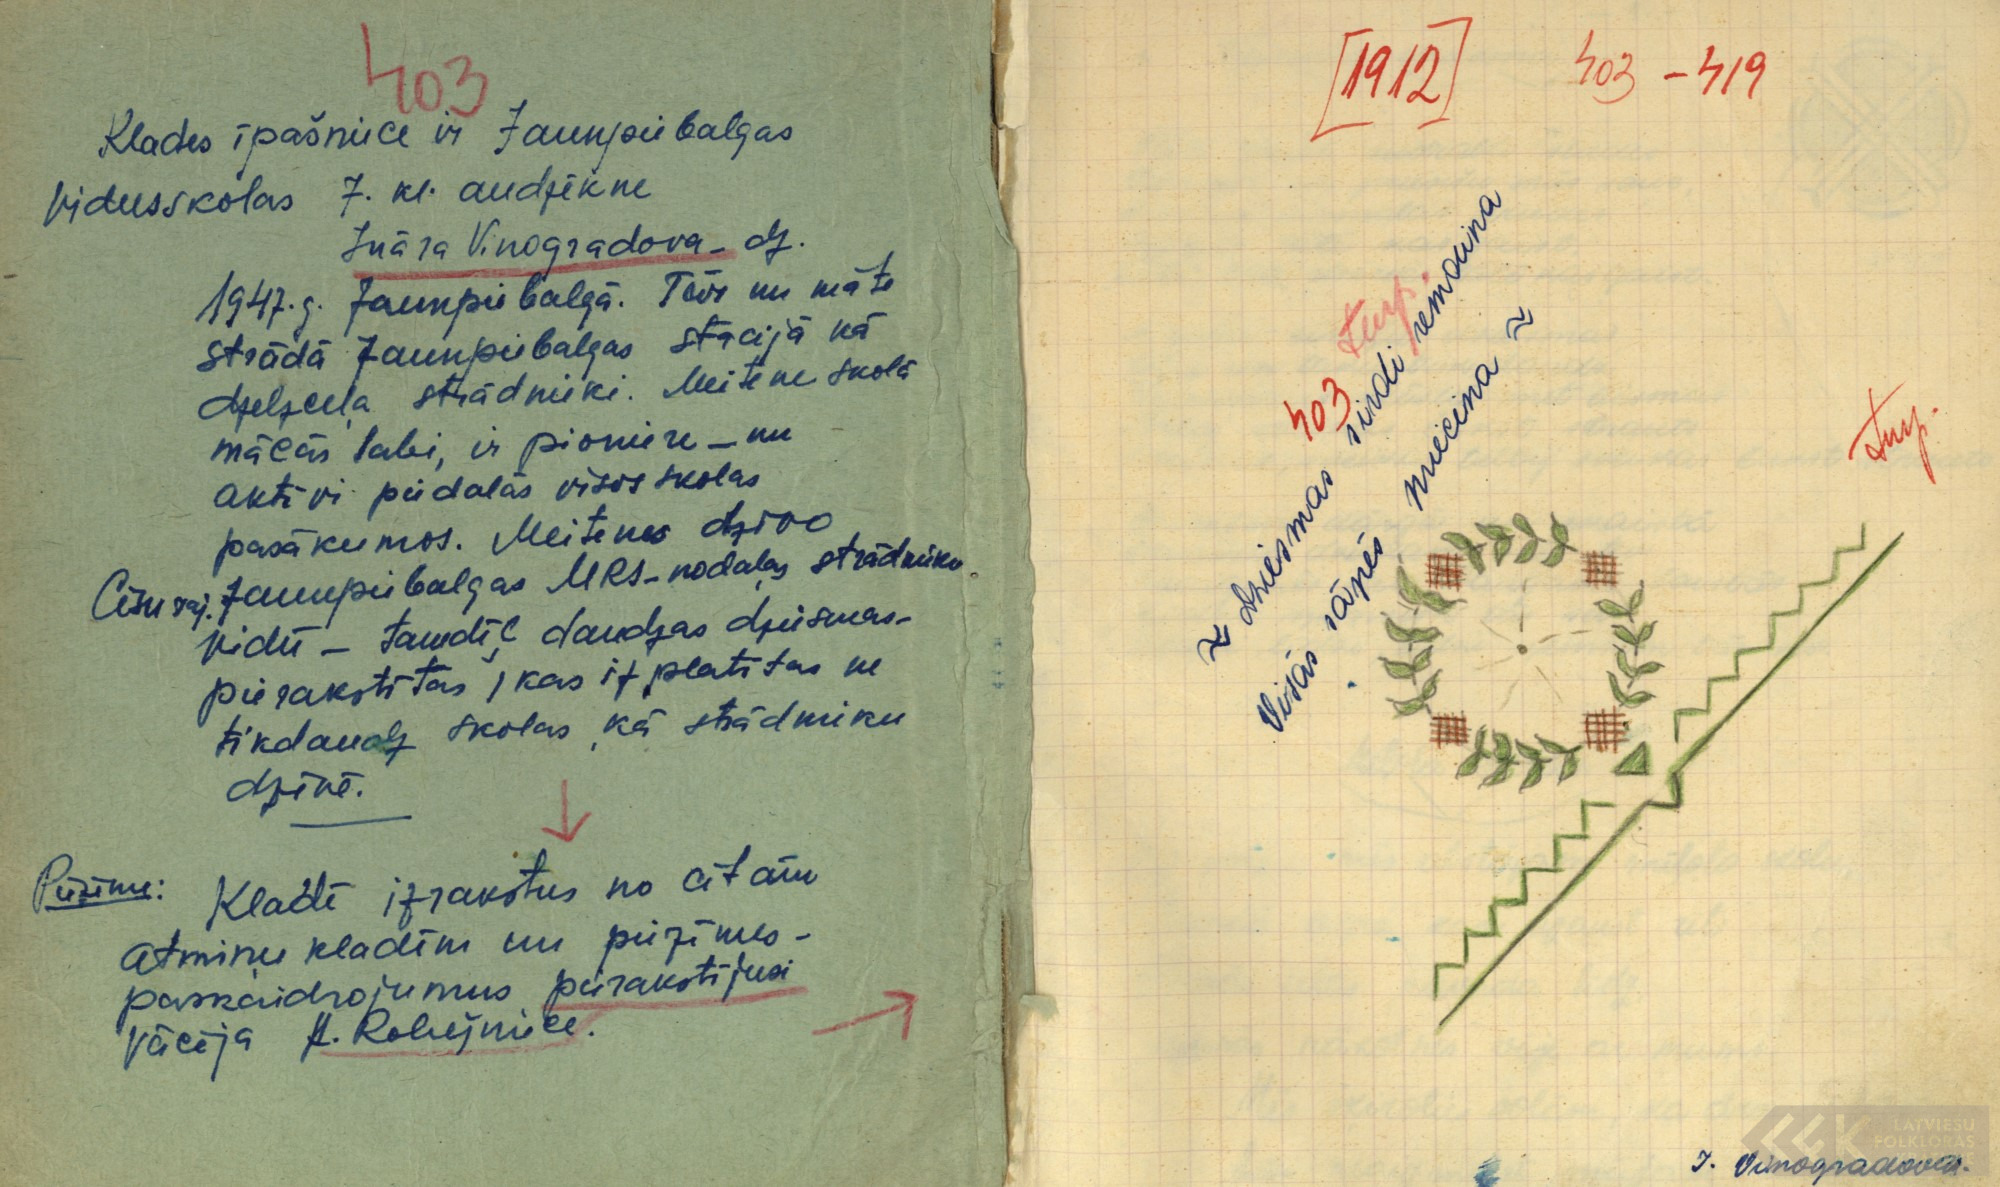 403
Klades īpašniece ir Jaunpiebalgas
vidusskolas 7. kl. audzēkne
Ināra Vinogradova – dz.
1947. g. Jaunpiebalgā. Tēvs un māte
strādā Jaunpiebalgas stacijā kā
dzelzceļa strādnieki. Meitene skolā
mācās labi, ir pioniere – un
aktīvi piedalās visos skolas
pasākumos. Meitenes dzīvo
Cēsu raj. Jaunpiebalgas MRS – nodaļas strādnieku
vidū – tamdēļ daudzas dziesmas –
pierakstītas, kas izplatītas ne
tikdaudz skolas, kā strādnieku
dzīvē.
Piezīme: Kladē izrakstus no citām
atmiņu kladēm un piezīmes –
paskaidrojumus pierakstījusi
vācēja A. Robežniece.
[1912] 403 – 419
turp.
403
~ Dziesmas sirdi remdina
Visās sāpēs mierina ~
turp.
LATVIEŠU
FOLKLORAS
I. Vinogradova.